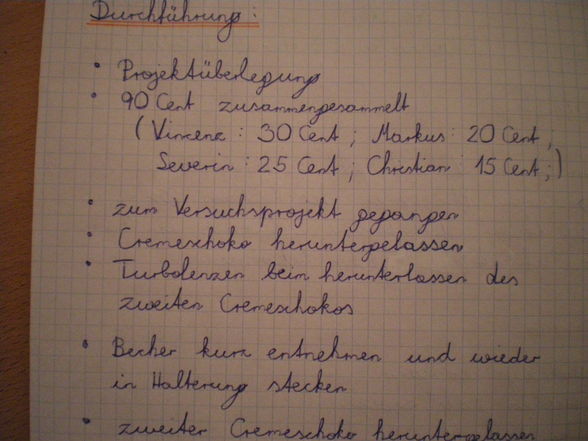 Durchführung:
• Projektüberlegung
• 90 Cent zusammengesammelt
(Vincenz: 30 Cent; Markus: 20 Cent;
Severin: 25 Cent; Christian: 15 Cent;)
• zum Versuchsprojekt gegangen
• Cremeschoko heruntergelassen
• Turbolenzen beim herunterlassen des
zweiten Cremeschokos
• Becher kurz entnehmen und wieder
in Halterung stecken
• zweiter Cremeschoko heruntergelassen